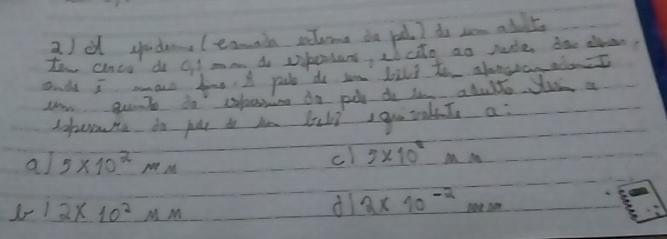 2) A epiderme (camada externa da pele) de um adulto
tem cerca de 0,1 mm de espessura, ao redor dos
onde é mais fina. A pele de um bebê tem aproximadamente
um quinto da espessura da pele de um adulto a
espessura da pele de um bebê equivalente a:
a) 5 x 10² mm
c) 5 x 10 mm
b) 2 x 10² mm
d) 2 x 10⁻² mm